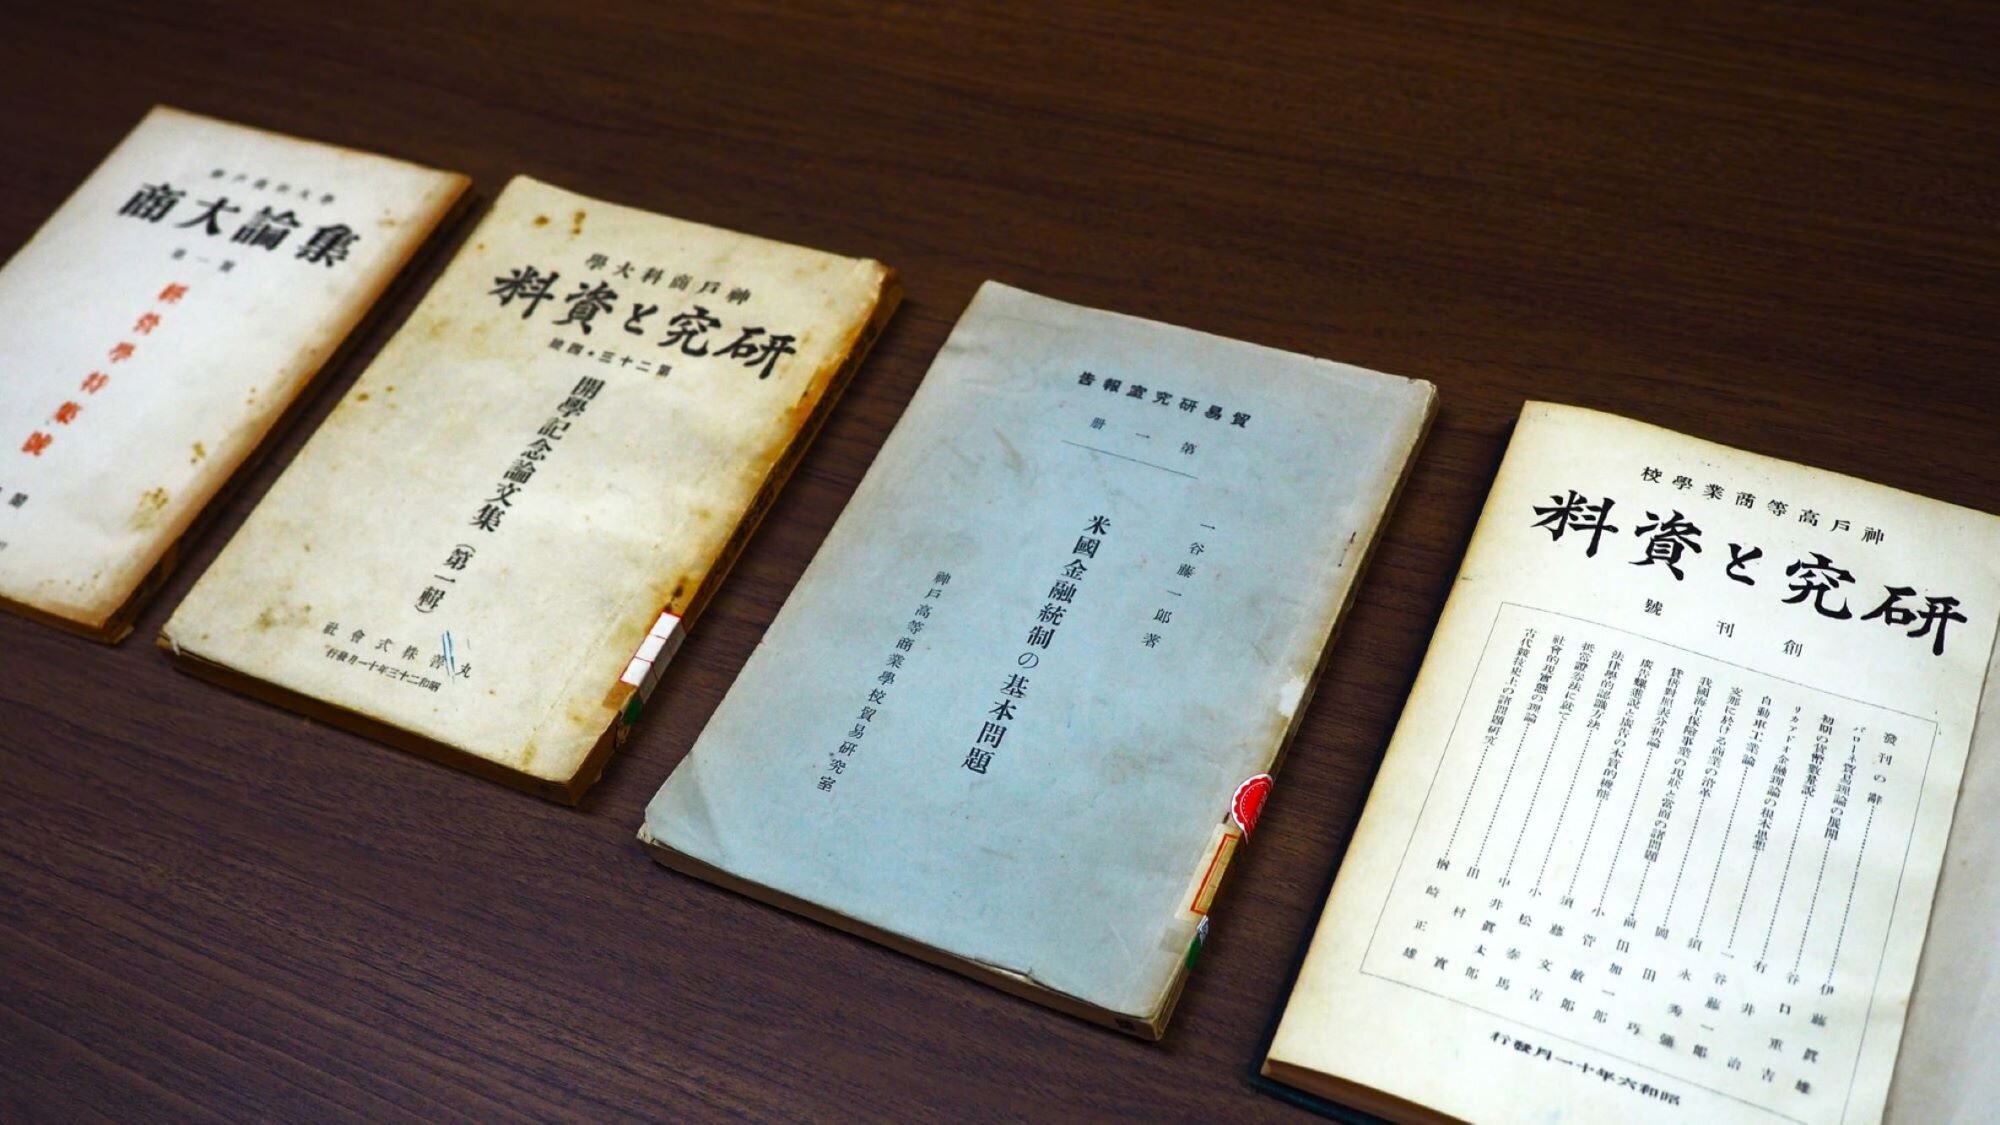 商大論集
第一號
經營學特集號
學大科商戶神
料資と究研
號四・三十二第
開學記念論文集
（第一輯）
社會式株善丸
行發月一十年三十二和昭
告報室究研易貿
册一第
一谷藤一郎著
米國金融統制の基本問題
神戶高等商業學校貿易研究室
校學業商等高戶神
料資と究研
號刊創
發刊の辭
バローネ貿易理論の展開 伊藤眞雄
初期の貨幣數量說 谷口重吉
リカァドオ金融理論の根本思想 有井治
自動車工業論 一谷藤一郎
支那に於ける商業の沿革 須永秀彌
我國海上保險事業の現狀と當面の諸問題 岡田巧
貸借對照表分析論 前田加一郎
廣告螺進說と廣告の本質的機能 小菅敏郎
法律學的認識方法 須藤文吉
抵當證券法に就て 小松泰馬
社會的現實態の理論 中井眞太郎
古代競技史上の諸問題研究 田村實
楢崎正雄
行發月一十年六和昭